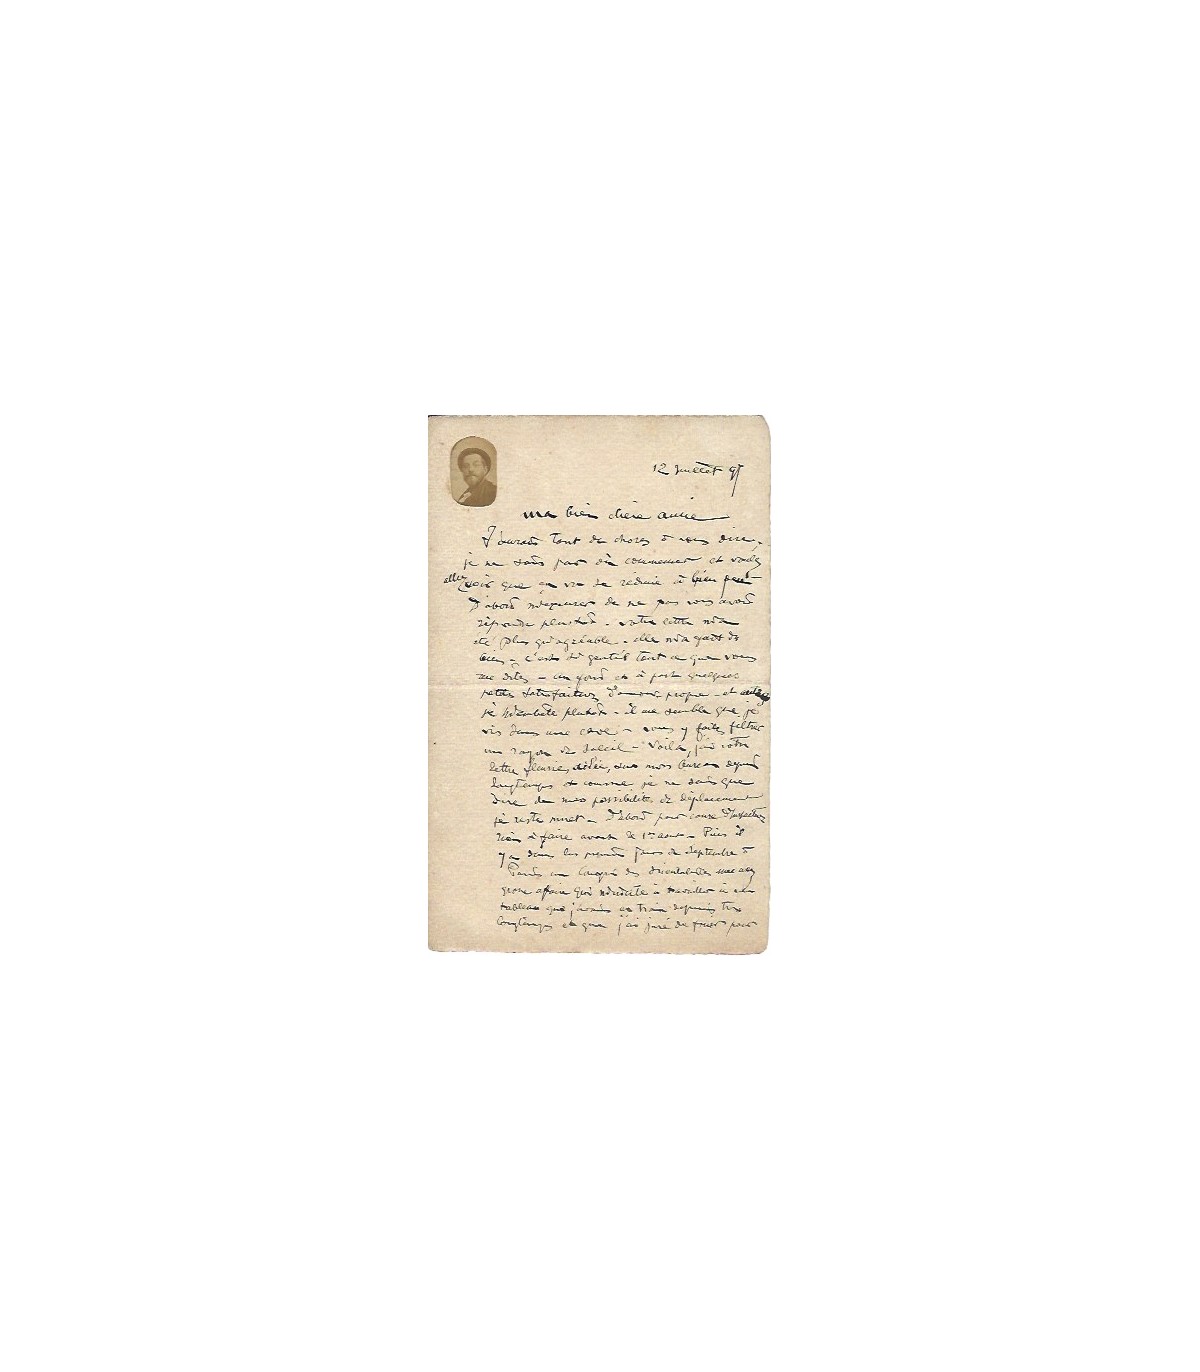 12 Juillet 97
ma bien chère amie
J'aurais tant de choses à vous dire,
je ne sais pas où commencer et vous
allez voir que ça va se réduire à bien peu
D'abord m'excuser de ne pas vous avoir
répondu plus tôt. votre lettre m'a
été plus qu'agréable. elle m'a fait du
bien. c'est si gentil tout ce que vous
me dites. au fond et à part quelques
petites satisfactions d'amour propre - et
je m'embête plutôt. il me semble que je
vis dans une cave. vous y faites filtrer
un rayon de soleil. Voilà, j'ai votre
lettre fleurie, sur mon bureau depuis
longtemps et comme je ne sais que
dire de mes possibilités de déplacement
je reste muet. D'abord pour cause
rien à faire avant le 1er août. Puis il
y a dans les premiers jours de Septembre à
Paris un Congrès des Orientalistes une
grosse affaire qui m'incite à travailler à un
tableau que j'avais en train depuis très
longtemps et que j'ai juré de finir pour